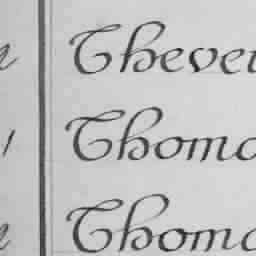 Theve
Thom
Thom